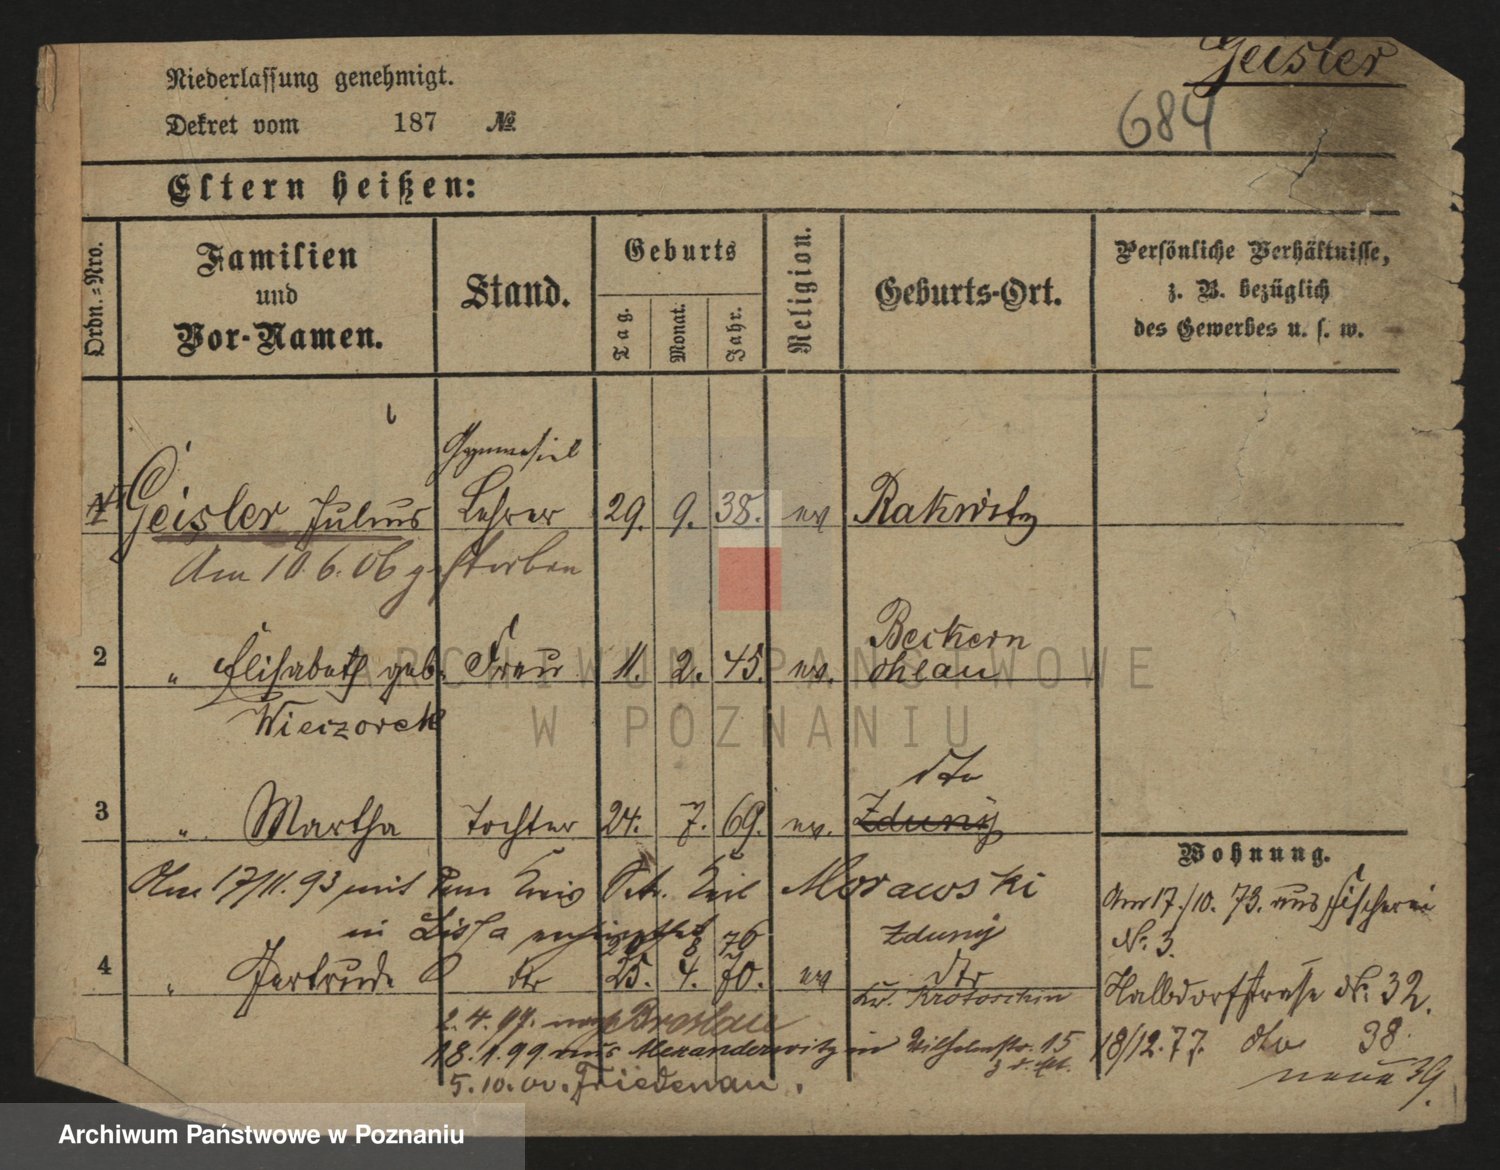 Geisler
Niederlassung genehmigt.
684
Dekret vom 187 №
Eltern heißen:
Ordn.-Nro.
Familien
und
Vor-Namen.
Stand.
Geburts
Tag.
Monat.
Jahr.
Religion.
Geburts-Ort.
Persönliche Verhältnisse,
z. B. bezüglich
des Gewerbes u. s. w.
Gymnasial
Geisler Julius Lehrer 29. 9. 38. ev Rakwitz
Am 10.6.06 gestorben
Beckern
2 " Elisabeth geb. Frau 11. 2. 45. ev. Ohlau
Wieczorek
dto
3 " Martha Tochter 24. 7. 69. ev. Zduny
Wohnung.
Am 17/11. 93 mit dem Morawski
in Lissa
Zduny
20 8 76
4 " Gertrude dto 25. 4. 70. ev dto
Kr. Krotoschin
2.4.97. nach Breslau
18.1.99 aus Alexanderwitz in Wilhelmstr. 15
5.10.00. Friedenau.
Am 17./10. 73. aus Fischerei
No. 3.
Halbdorfstrasse No. 32.
18/12.77. dto 38.
neue 39.
ARCHIWUM PAŃSTWOWE
W POZNANIU
Archiwum Państwowe w Poznaniu